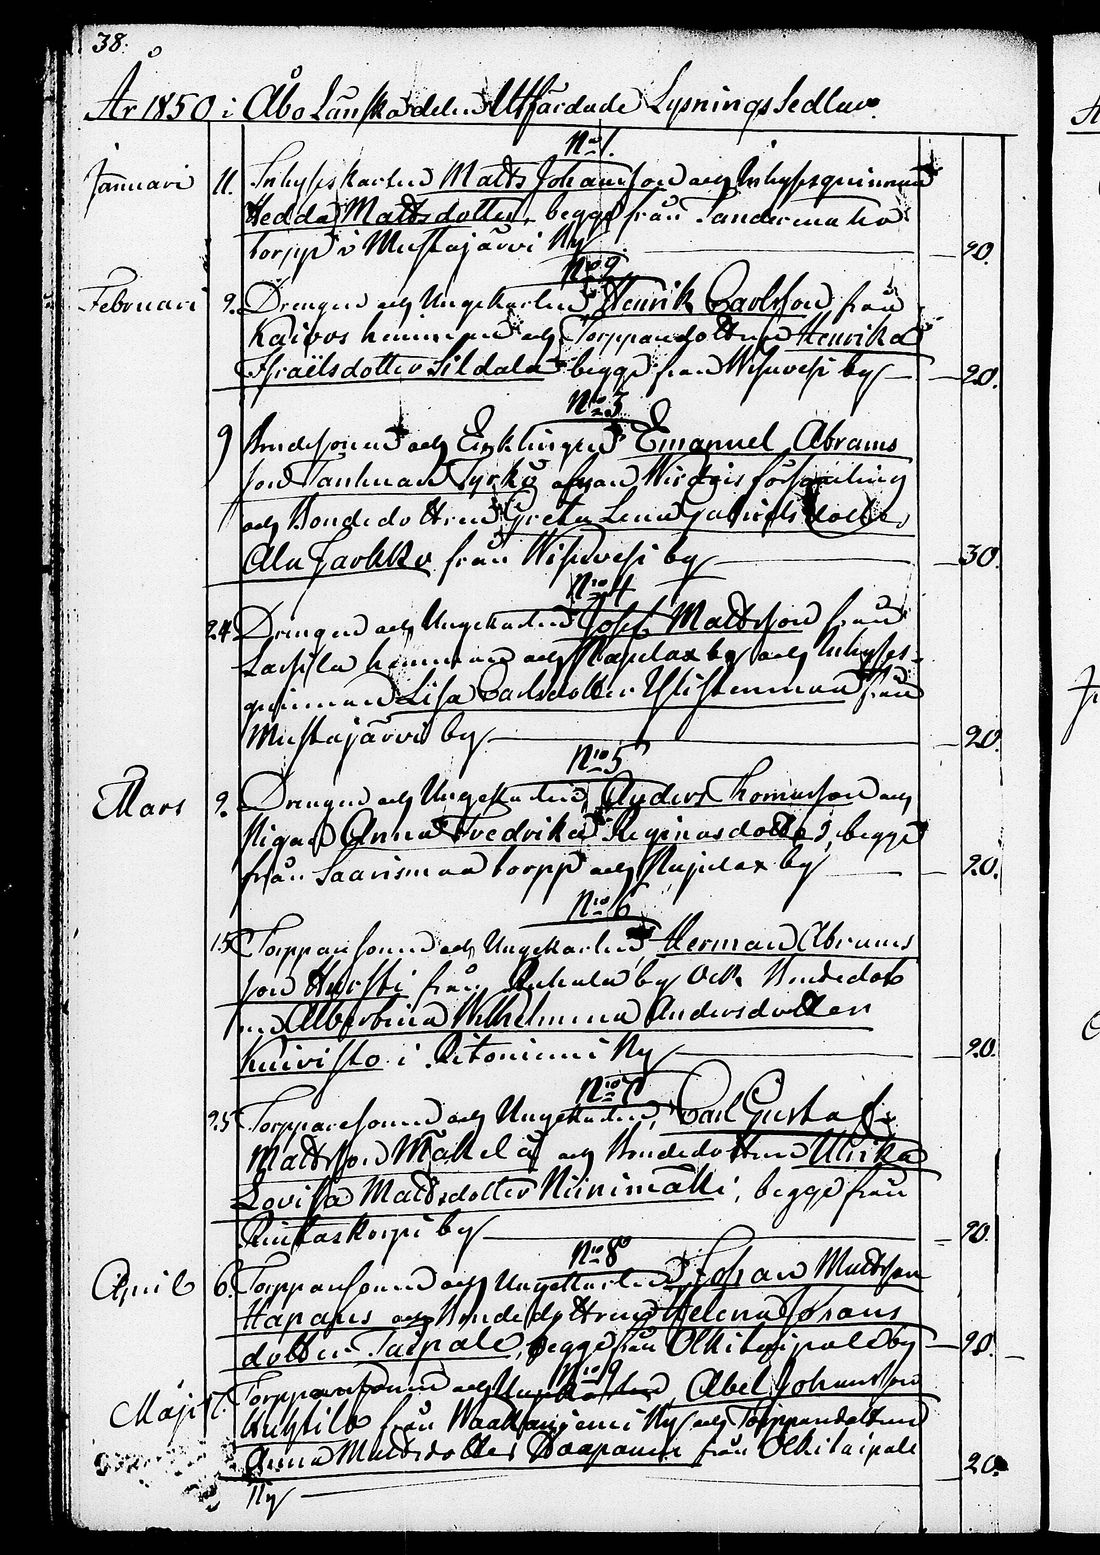 38.
År 1850 i Åbo Länska delen Utfärdade Lysnings Sedlar.
No 1.
Januari 11. Inhyses karlen Matts Johansson och Inhysesquinnan
Hedda Mattsdotter, begge från
torpp i Mustajärvi By 20.
No 2
Februari 9. Drengen och Ungekarlen Henrik Carlsson från
Kaivos hemman och Torppare dottren Henrika
Israëlsdotter Sildala begge från Wesivesi by 20.
No 3
9 Bondesonen och Enklingen Emanuel Abrams
son Tyrkö ifrån Wirdois församling
och Bondedottren Greta Lena Gabrielsdotter
Ala från Wesivesi by 30.
No 4
24. Drengen och Ungekarlen Josef Mattsson från
Lassila hemman och by och Inhyses-
quinnan Lisa Carlsdotter från
Mustajärvi by 20.
No 5
Mars 9. Drengen och Ungekarlen Anders Thomasson och
Pigan Anna Fredrika Reginasdotter, begge
från Saarismaa torpp och by 20.
No 6
15 Torppare sonen och Ungekarlen Herman Abrams
son Hursti från by och Bondedott
ren Albertina Wilhelmina Andersdotter
Knivisto i Ritoniemi By 20.
No 7
25 Torppare sonen och Ungekarlen, Carl Gustaf
Mattsson Mäkelä och Bondedottren Ulrika
Lovisa Mattsdotter Niinimäki, begge från
Ruikaskorpi by 20.
No 8
April 6. Torppare sonen och Ungekarlen Johan Mattsson
Hapanes och Bondedottren Helena Johans
dotter Taipale, begge från Olkitaipale by 20.
No 9
Maji 7. Torppare sonen och Ungekarlen Abel Johansson
från By och Torpparedottren
Anna Mattsdotter Haapanen från Olkitaipale 20.
By